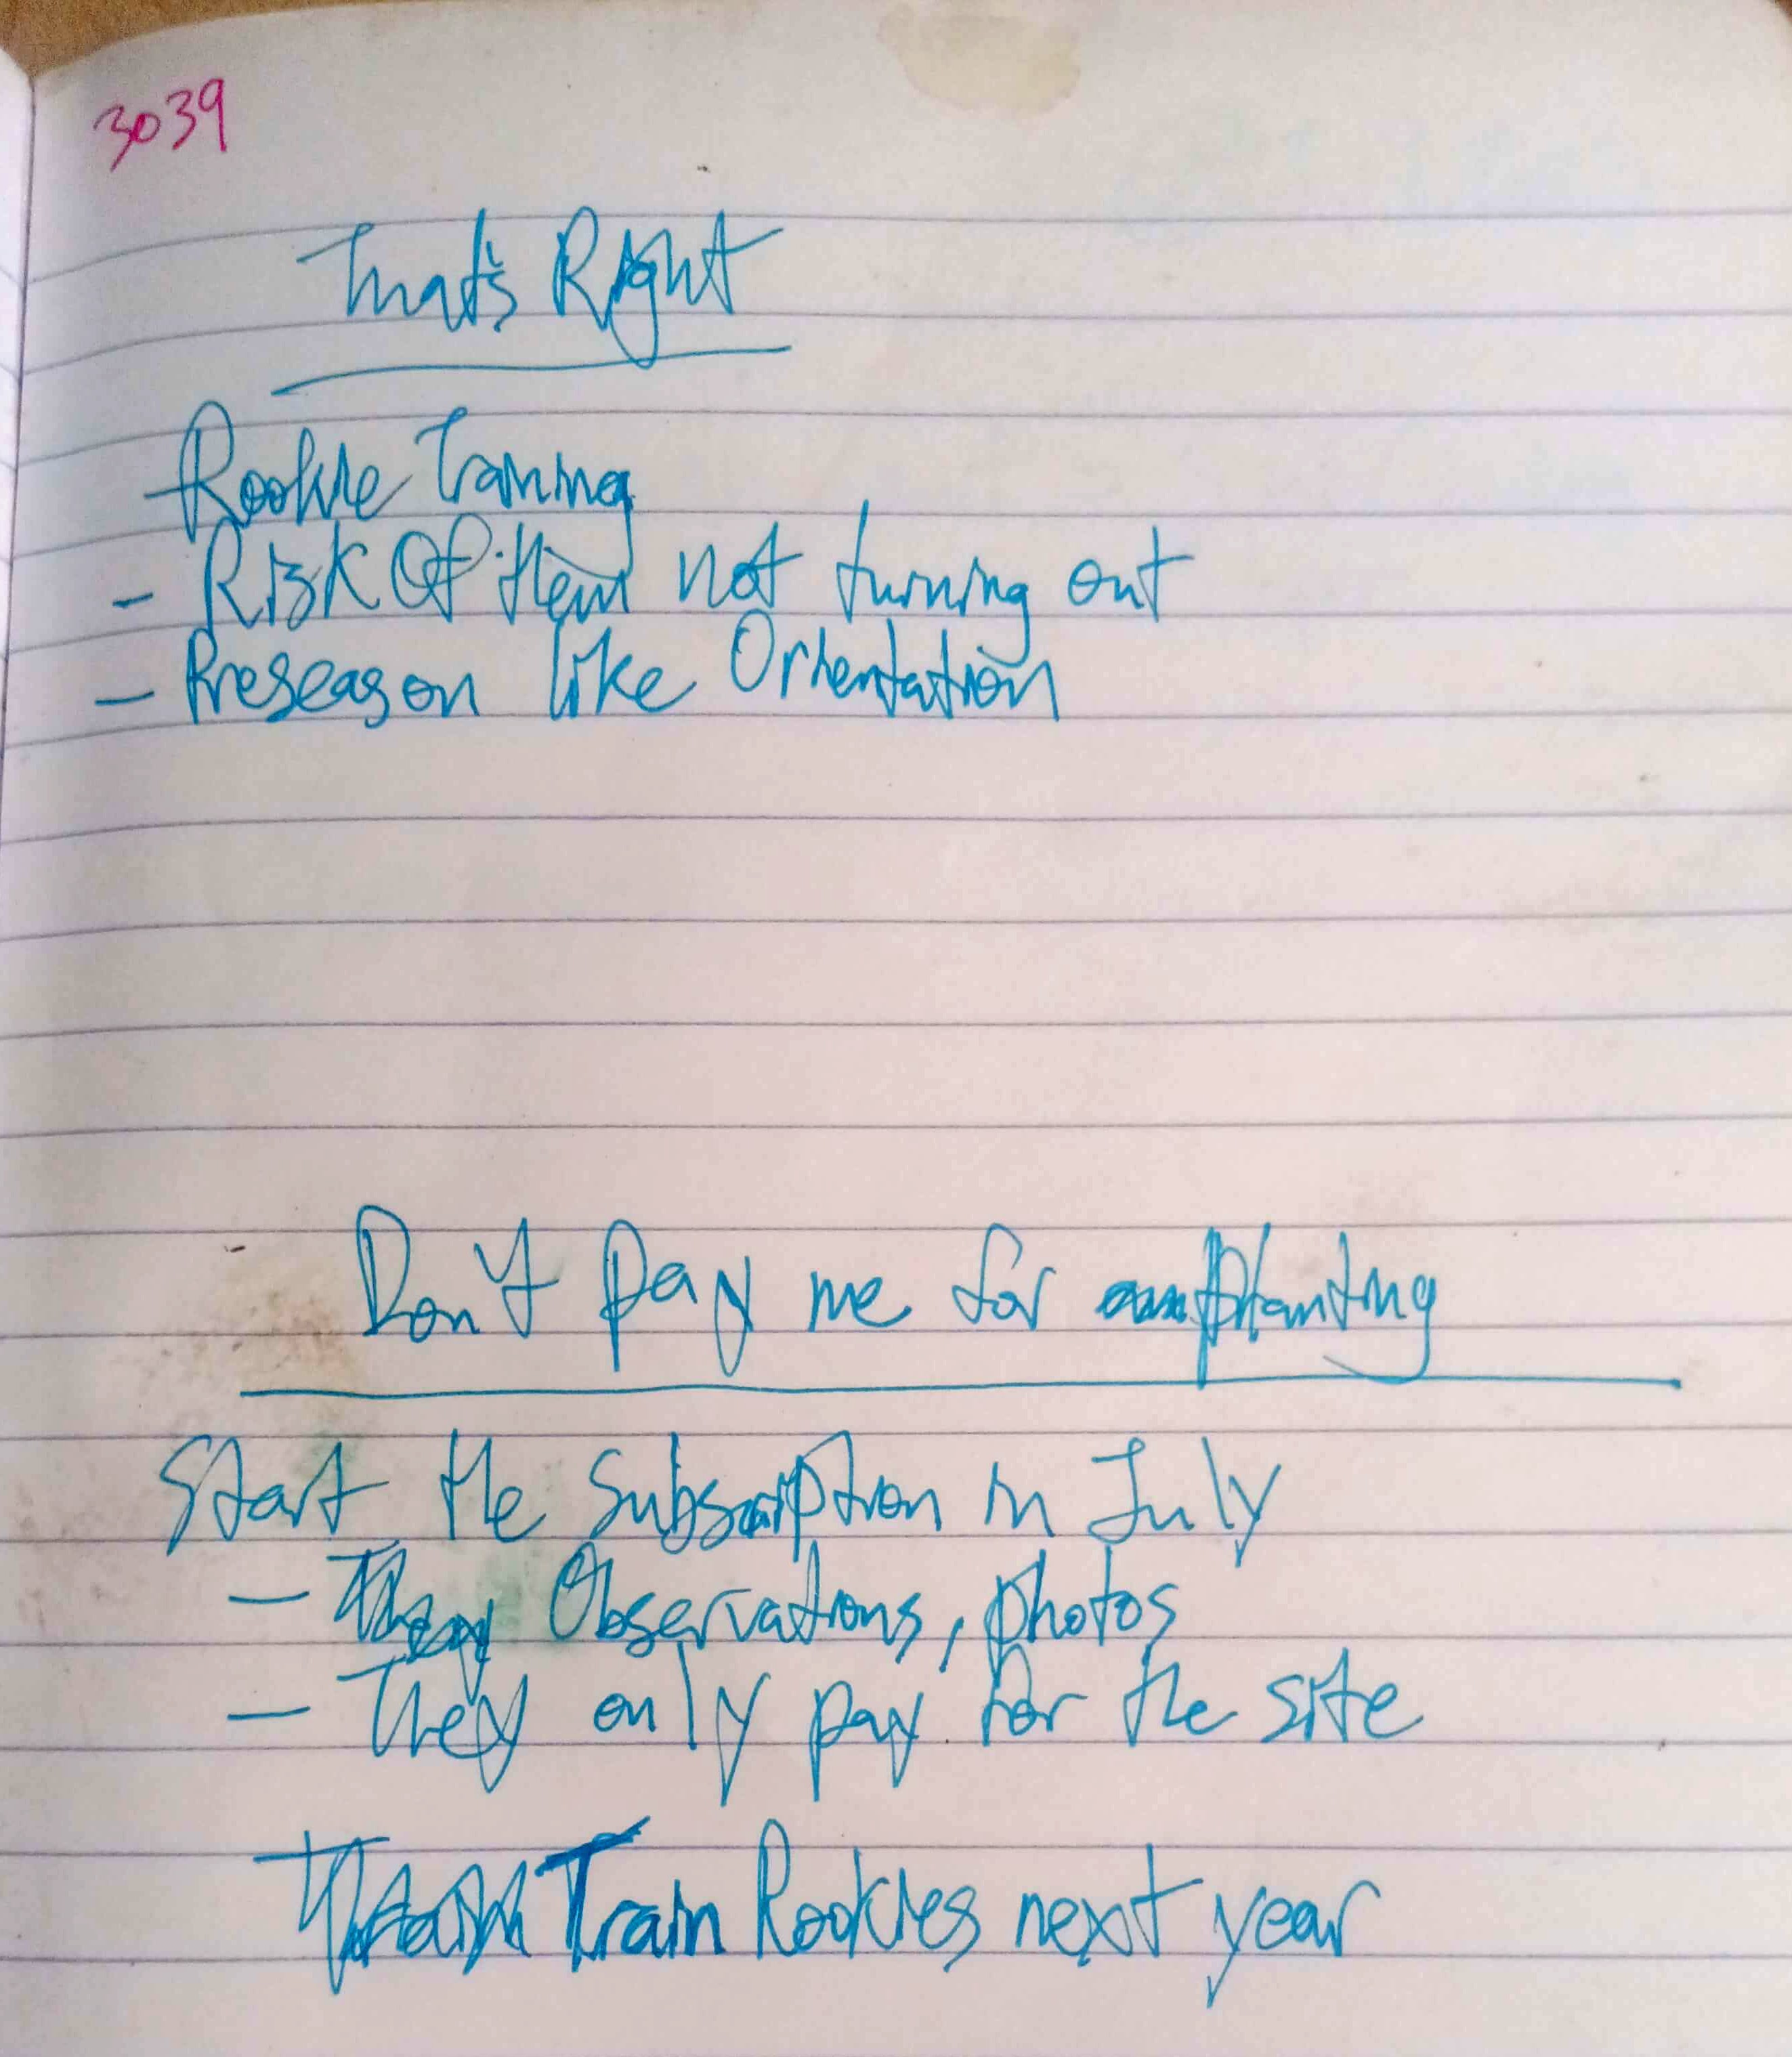 3039
That's Right
Rookie Training
- Risk Of them not turning out
- Preseason like Orientation
Don't pay me for planting
Start the subscription in July
- Observations, photos
- They only pay for the site
Train Rookies next year